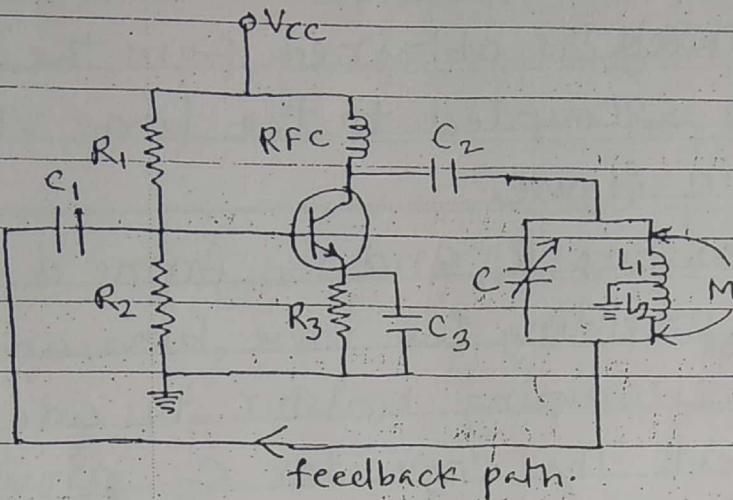 VCC
R1
RFC
C2
C1
R2
R3
C3
C
L1
L2
M
feedback path.